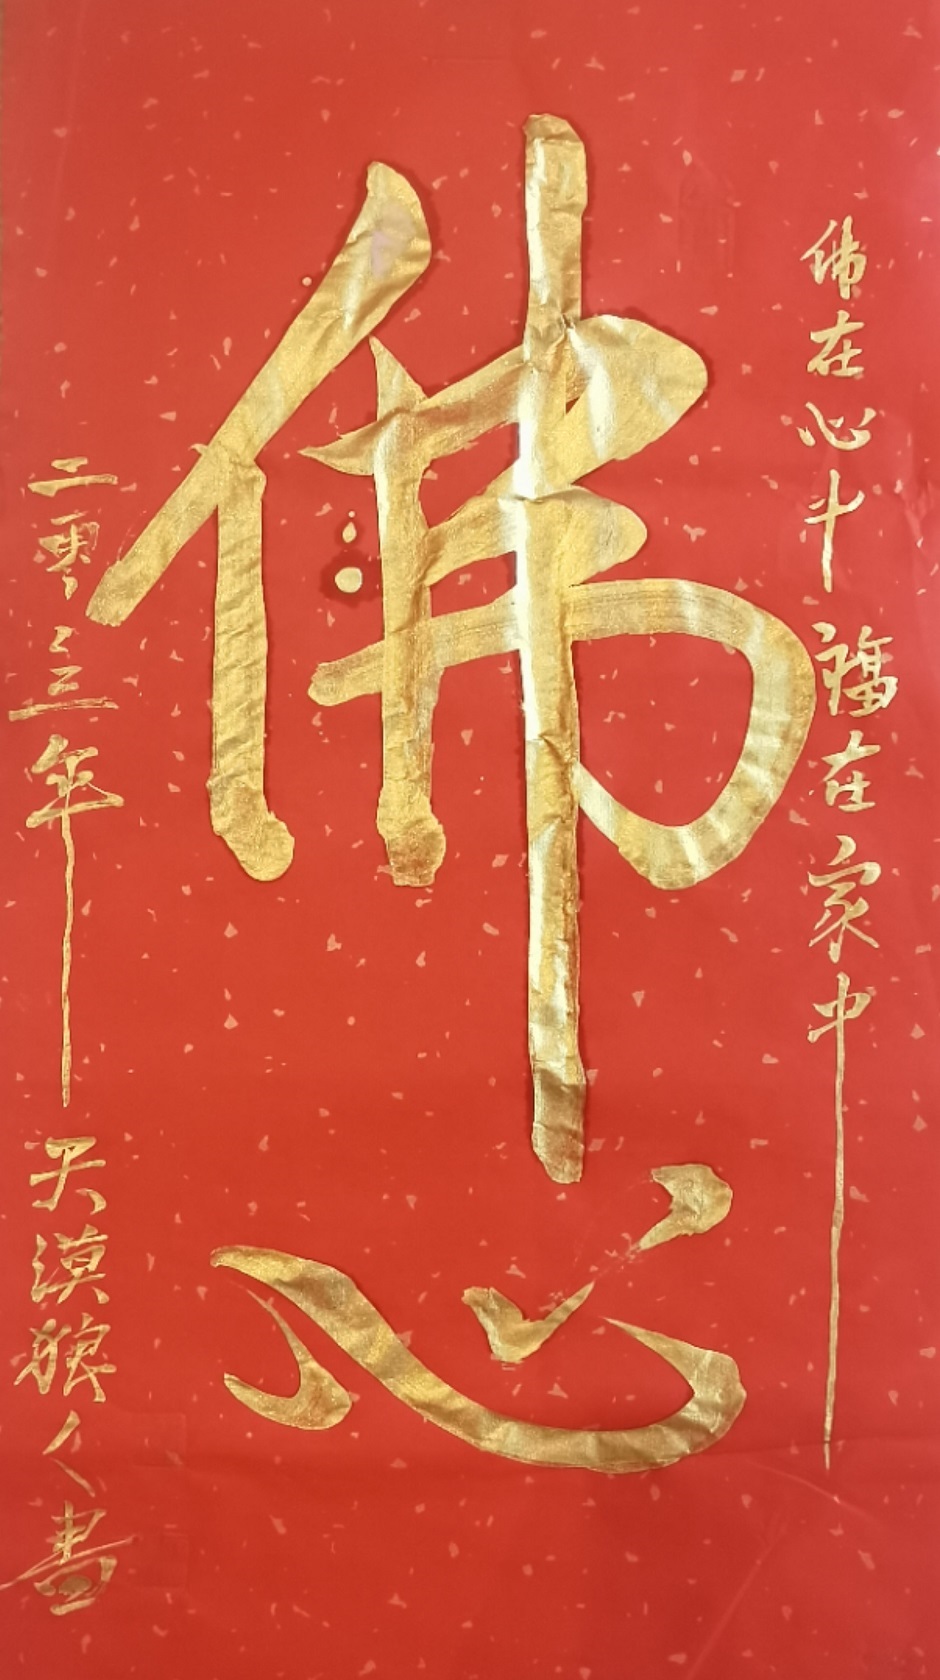 佛在心中福在家中
佛心
二零二三年天漠狼人書